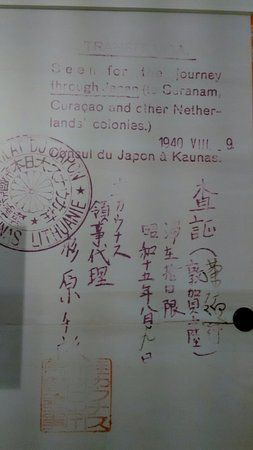 TRANSIT VISA.
Seen for the journey
through Japan (to Suranam,
Curaçao and other Nether-
lands' colonies.)
1940 VIII 9
Consul du Japon à Kaunas.
LITHUANIE
査証(敦賀上陸)
滞在拾日限
昭和十五年八月九日
在カウナス
領事代理
杉原千畝